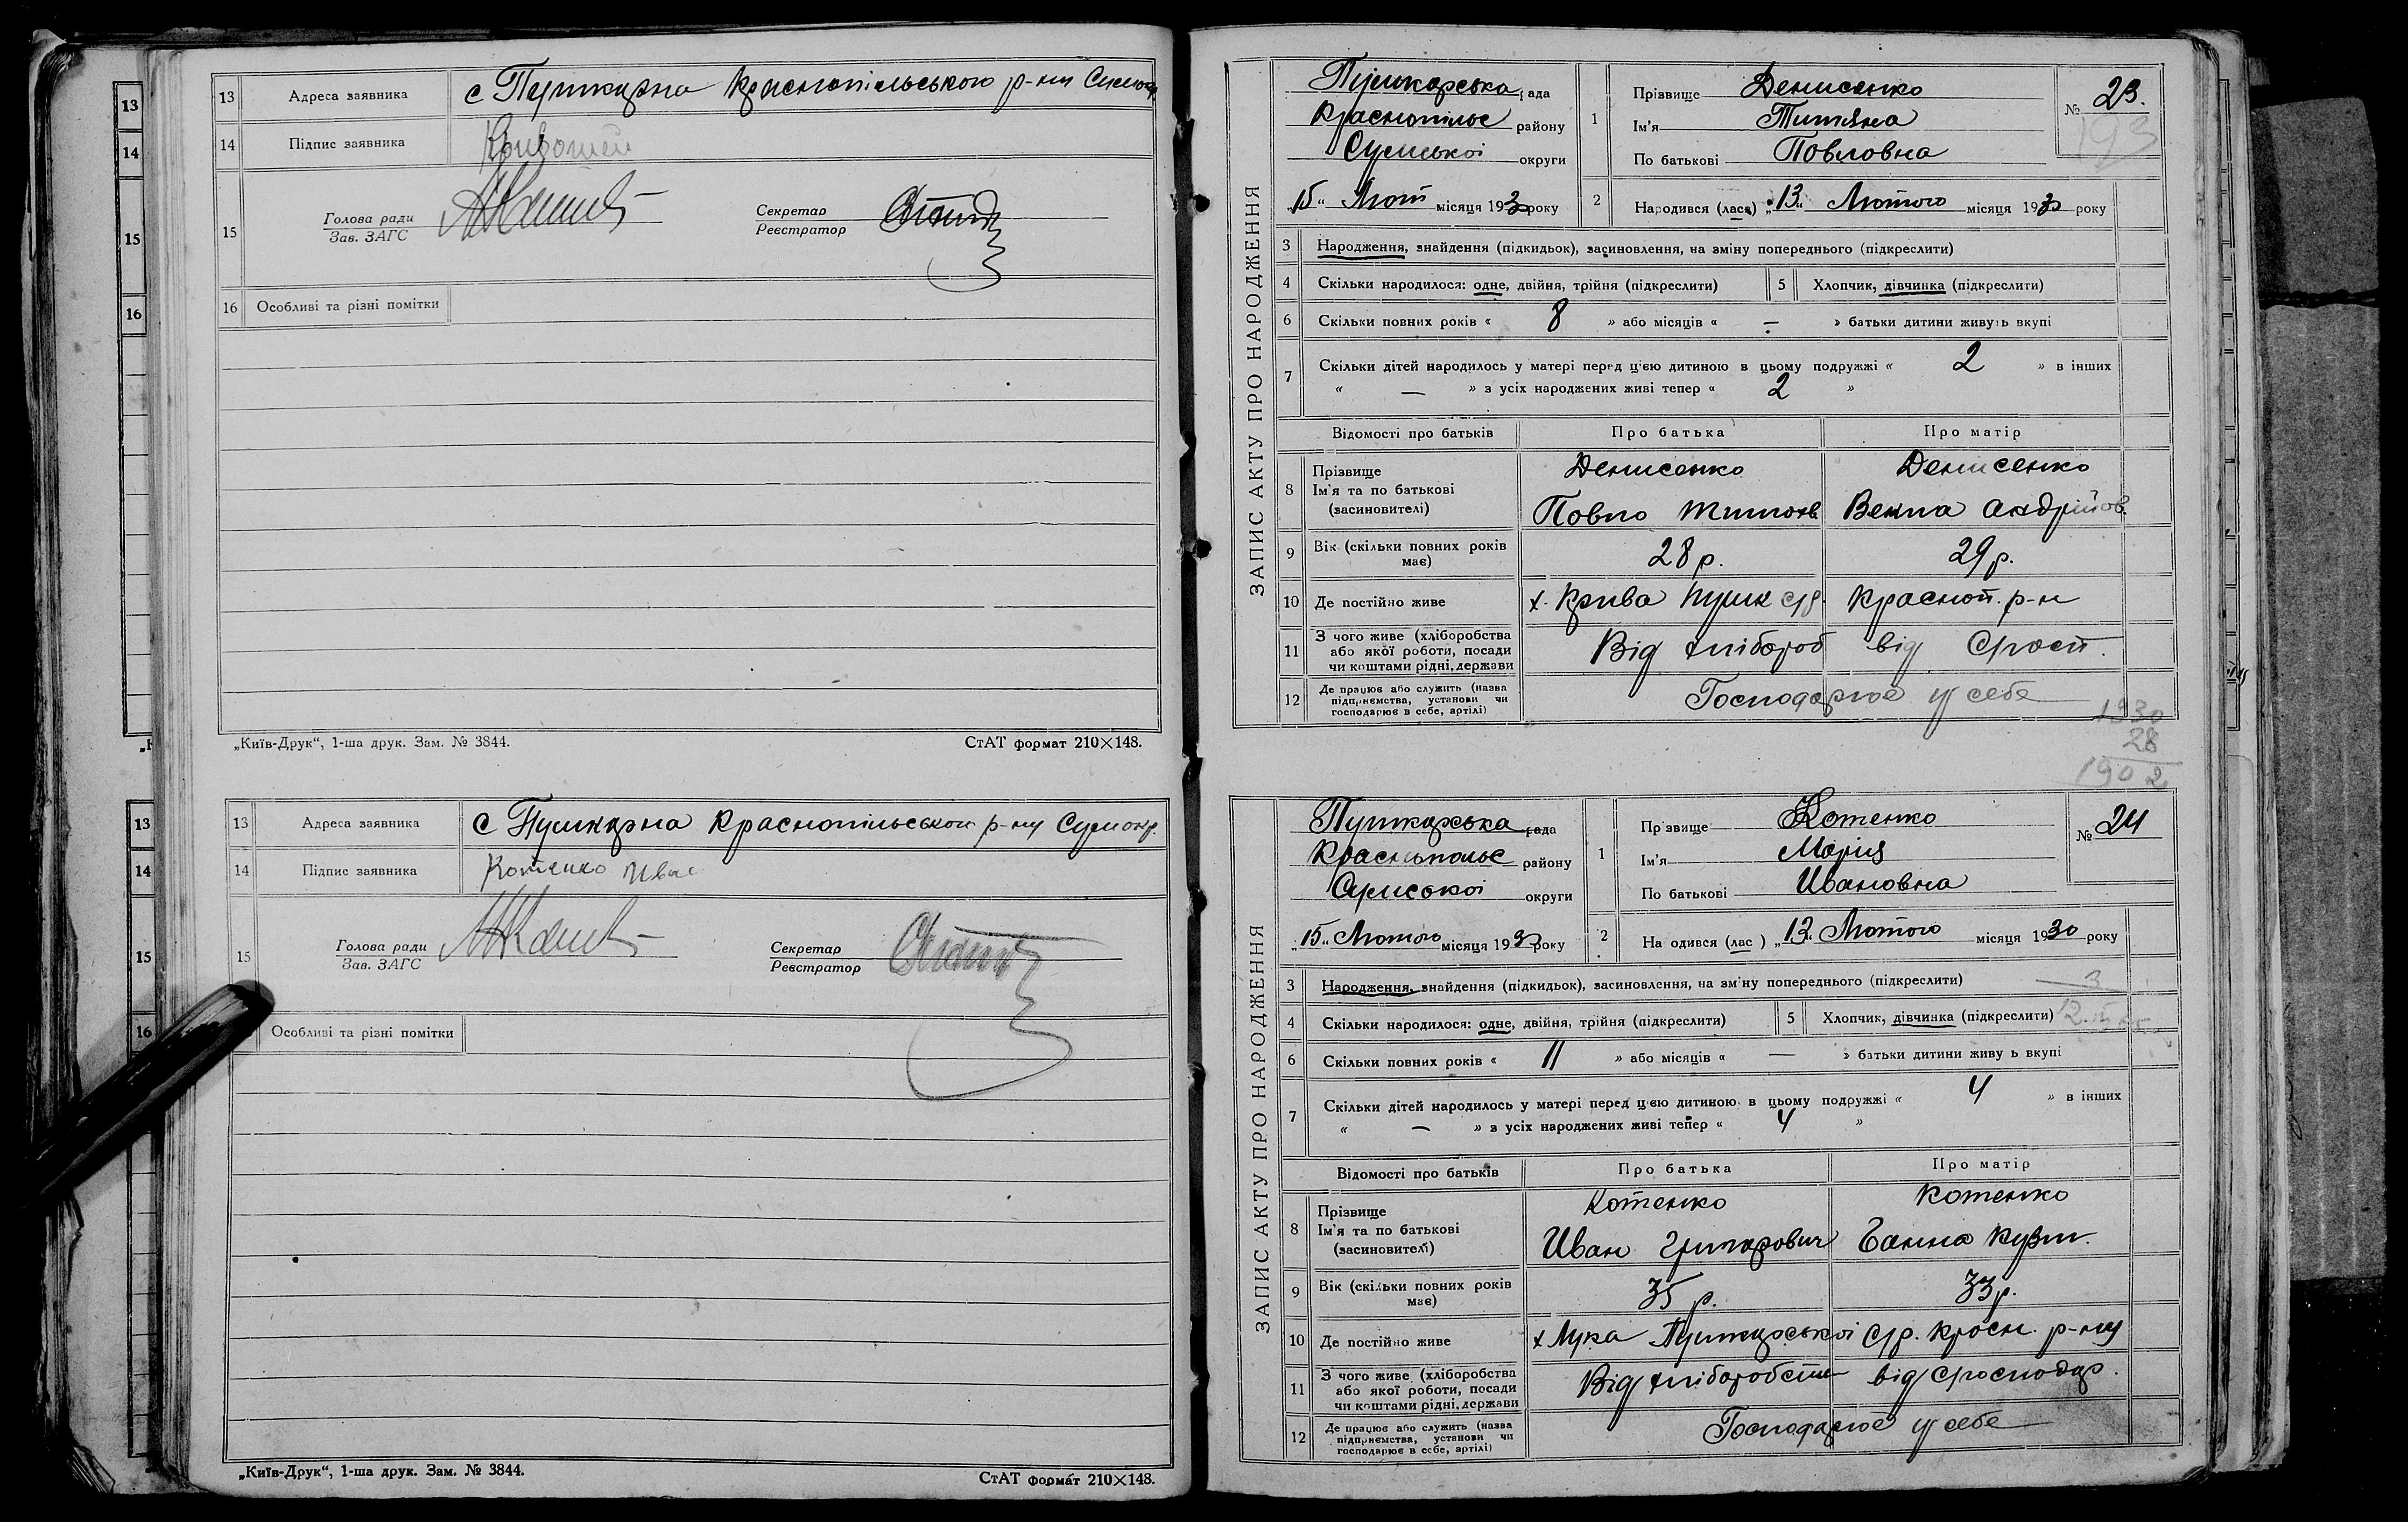 13 Адреса заявника с Пушкарна Краснопільського р-ну Сумокр.
14 Підпис заявника
15 Голова ради
Зав. ЗАГС
Секретар
Реєстратор
16 Особливі та різні помітки
„Київ-Друк“, 1-ша друк. Зам. № 3844. СтАТ формат 210×148.
13 Адреса заявника с Пушкарна Краснопільського р-ну Сумокр.
14 Підпис заявника Котенко Иван
15 Голова ради
Зав. ЗАГС
Секретар
Реєстратор
Особливі та різні помітки
„Київ-Друк“, 1-ша друк. Зам. № 3844. СтАТ формат 210×148.
13
14
15
16
13
14
15
16
ЗАПИС АКТУ ПРО НАРОДЖЕННЯ
Пушкарська рада
Краснопільс району
Сумської округи
„15“ Лют місяця 1930 року
1 Прізвище Денисенко
Ім'я Титяна
По батькові Повловна
№ 23.
193
2 Народився (лась) „13“ Лютого місяця 1930 року
3 Народження, знайдення (підкидьок), засиновлення, на зміну попереднього (підкреслити)
4 Скільки народилося: одне, двійня, трійня (підкреслити) 5 Хлопчик, дівчинка (підкреслити)
6 Скільки повних років « 8 » або місяців « - » батьки дитини живуть вкупі
7 Скільки дітей народилось у матері перед цією дитиною в цьому подружжі « 2 » в інших
« — » з усіх народжених живі тепер « 2 »
Відомості про батьків Про батька Про матір
8 Прізвище Денисенко Денисенко
Ім'я та по батькові
(засиновителі) Повло Тимохв. Векла Андрійов.
9 Вік (скільки повних років
має) 28 р. 29 р.
10 Де постійно живе х. Крива Пушк с/р. Красноп. р-н
11 З чого живе (хліборобства
або якої роботи, посади
чи коштами рідні, держави Від хлібороб від С/госп.
12 Де працює або служить (назва
підприємства, установи чи
господарює в себе, артілі) Господарює у себе
1930
28
1902
ЗАПИС АКТУ ПРО НАРОДЖЕННЯ
Пушкарська рада
Краснопольс району
Сумської округи
„15“ Лютого місяця 1930 року
1 Прізвище Котенко
Ім'я Марія
По батькові Ивановна
№ 24
2 Народився (лас ) „13“ Лютого місяця 1930 року
3 Народження, знайдення (підкидьок), засиновлення, на зміну попереднього (підкреслити)
4 Скільки народилося: одне, двійня, трійня (підкреслити) 5 Хлопчик, дівчинка (підкреслити)
6 Скільки повних років « 11 » або місяців « — » батьки дитини живуть вкупі
7 Скільки дітей народилось у матері перед цією дитиною в цьому подружжі « 4 » в інших
« — » з усіх народжених живі тепер « 4 »
Відомості про батьків Про батька Про матір
8 Прізвище Котенко Котенко
Ім'я та по батькові
(засиновителі) Иван Григорович Ганна Кузм.
9 Вік (скільки повних років
має) 35 р. 33 р.
10 Де постійно живе х Лука Пушкарської с/р. Красн. р-ну
11 З чого живе (хліборобства
або якої роботи, посади
чи коштами рідні, держави Від хліборобства від С/господар.
12 Де працює або служить (назва
підприємства, установи чи
господарює в себе, артілі) Господарює у себе